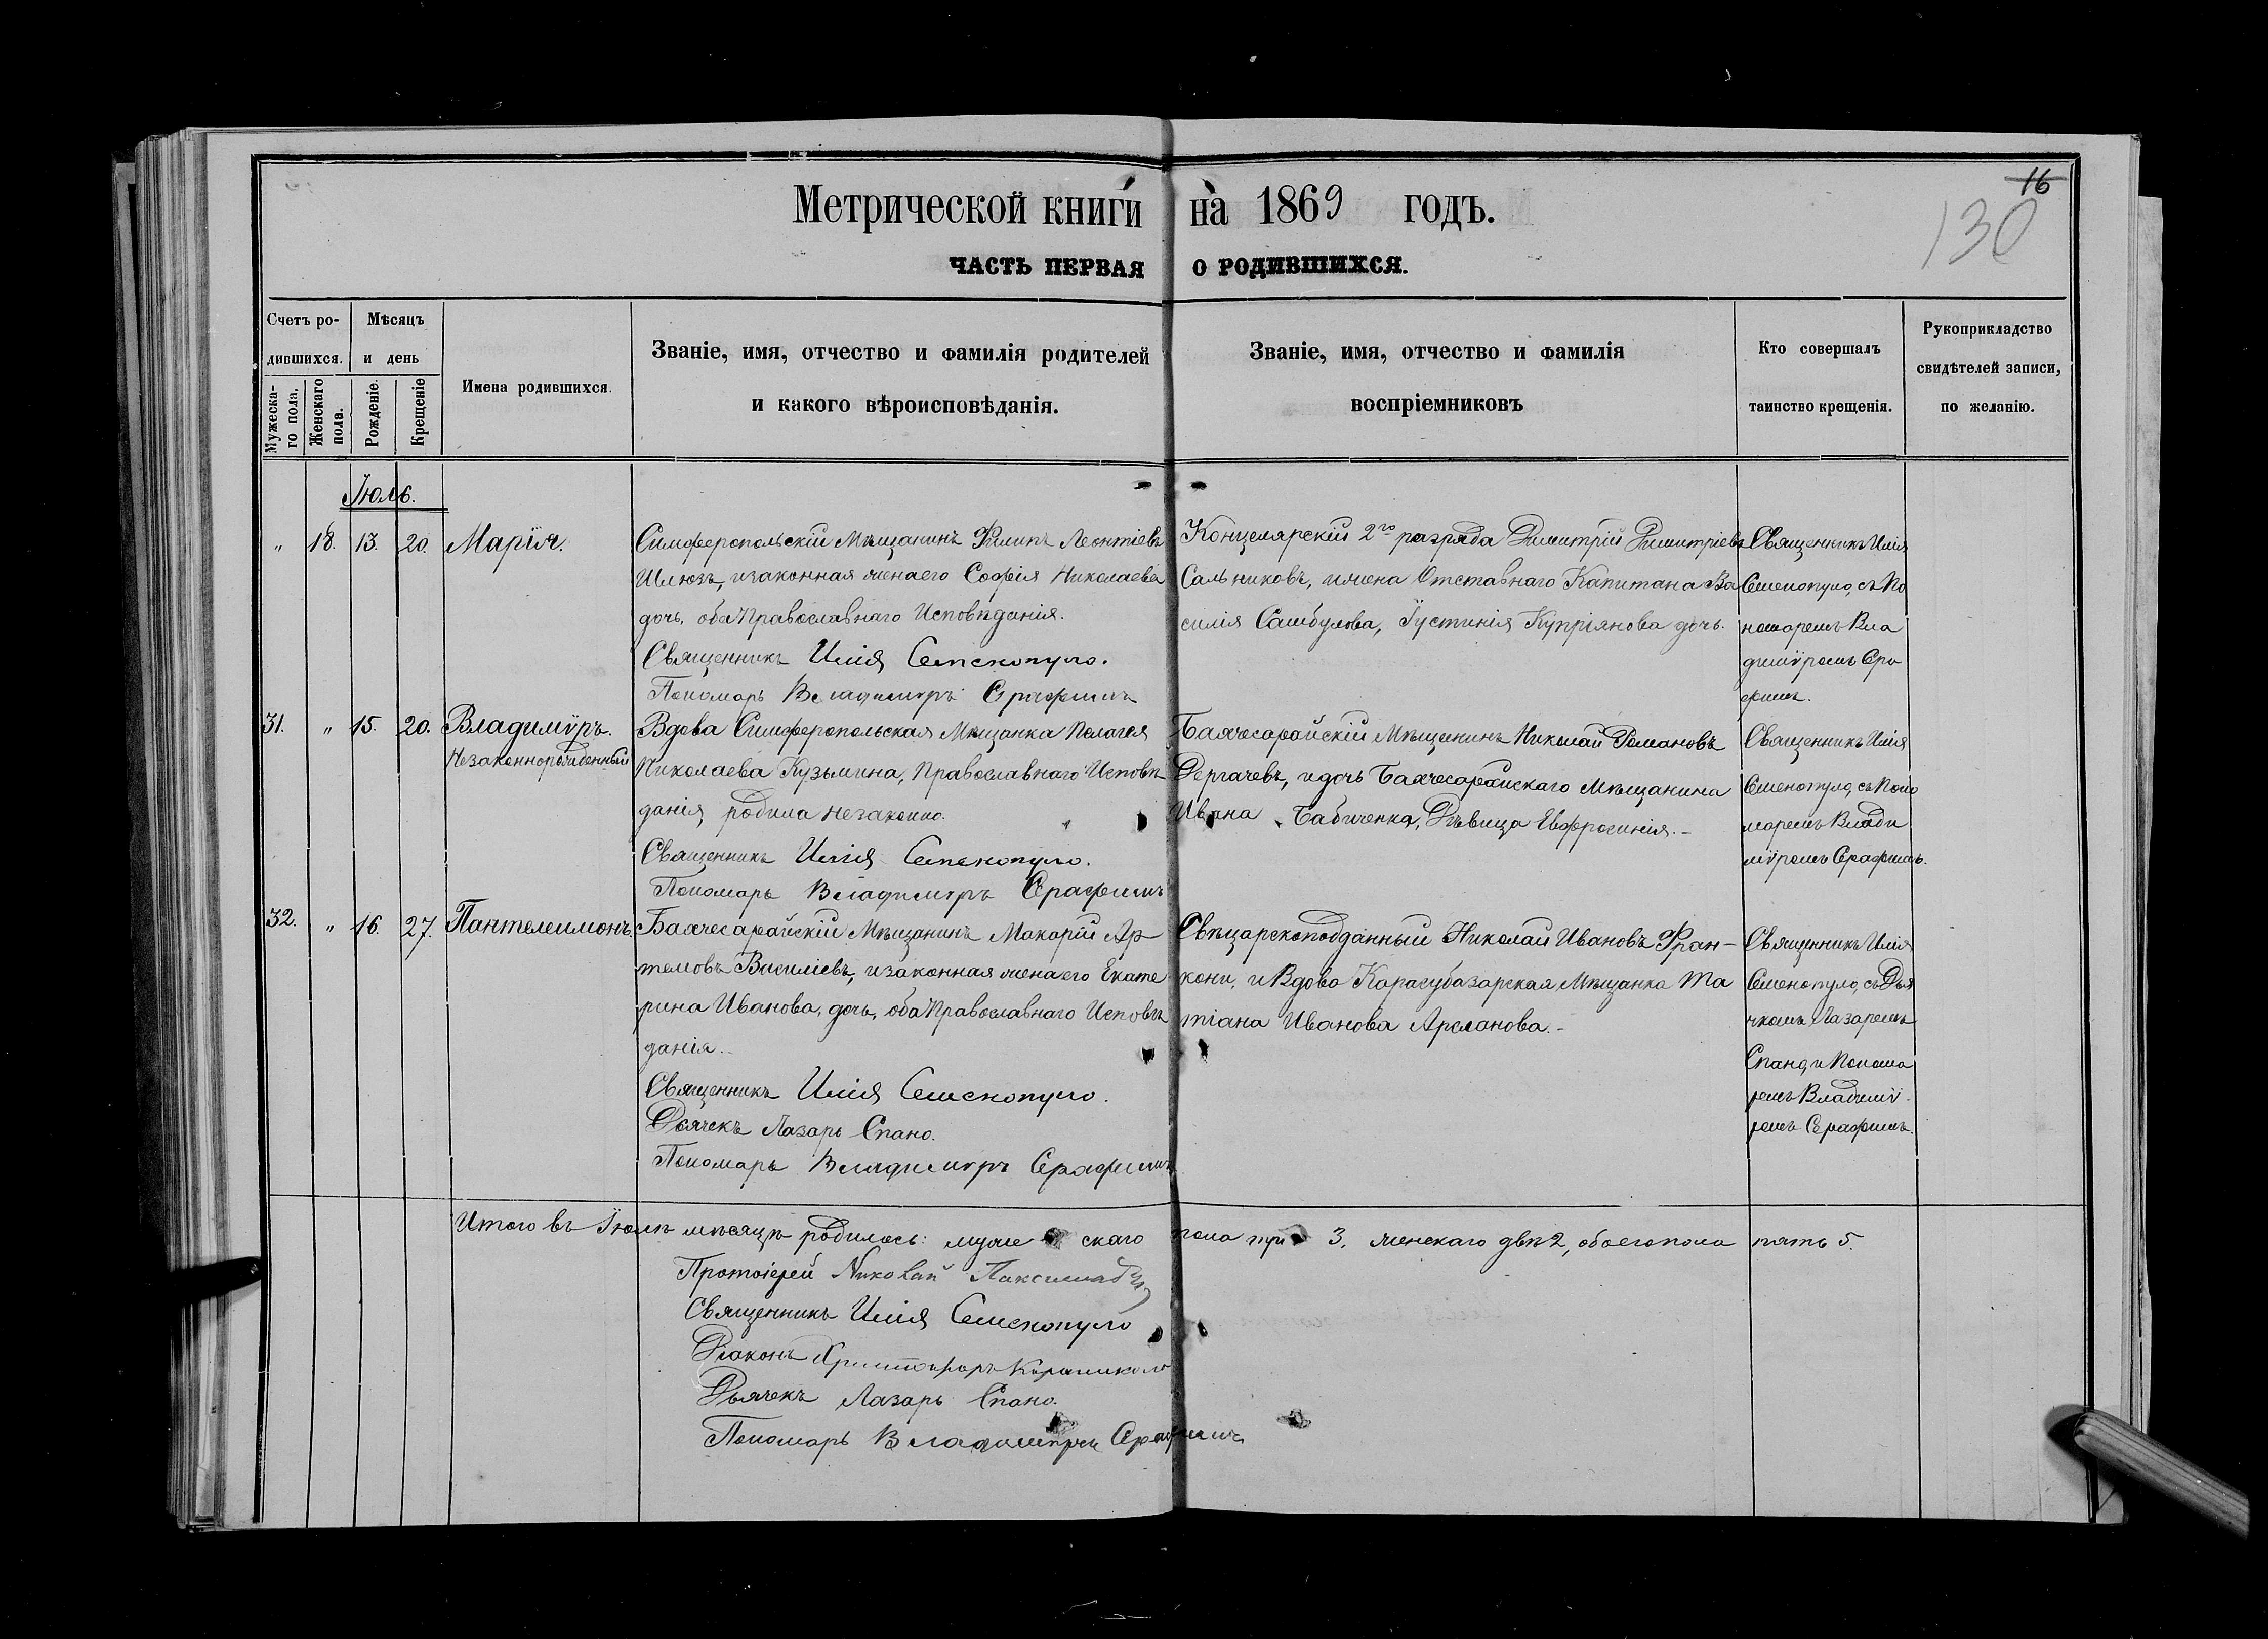 16
130
Метрической книги на 1869 годъ.
ЧАСТЬ ПЕРВАЯ О РОДИВШИХСЯ.
Счетъ ро-
дившихся.
Мужеска-
го пола.
Женскаго
пола.
Мѣсяцъ
и день
Рожденіе.
Крещеніе
Имена родившихся.
Званіе, имя, отчество и фамилія родителей
и какого вѣроисповѣданія.
Званіе, имя, отчество и фамилія
воспріемниковъ
Кто совершалъ
таинство крещенія.
Рукоприкладство
свидѣтелей записи,
по желанію.
Іюль.
" 18. 13. 20. Марія.
Симферопольскій Мѣщанинъ Филипъ Леонтіевъ
Шлюзъ, и законная жена его Софія Николаева
дочь, оба Православнаго Исповѣданія.
Священникъ Илія
Пономарь Владимиръ Серафимъ
Концелярскій 2го разряда Димитрій Димитріевъ
Сальниковъ, и жена Отставнаго Капитана Ва
силія Самбулова, Іустинія Купріянова дочь.
Священникъ Илія
съ По
номаремъ Вла
диміромъ Сера
фимъ.
31. " 15. 20. Владиміръ.
Незаконнорожденный
Вдова Симферопольская Мѣщанка Пелагея
Николаева Кузьмина, Православнаго Исповѣ
данія, родила незаконно.
Священникъ Илія
Пономарь Владимиръ Серафимъ
Бахчесарайскій Мѣщанинъ Николай Романовъ
Дергачевъ, и дочь Бахчесарайскаго Мѣщанина
Ивана Бабиченка, Дѣвица Евфросинія.-
Священникъ Илія
съ Поно
маремъ Влади
міромъ Серафимъ.
32. " 16. 27. Пантелеимонъ.
Бахчесарайскій Мѣщанинъ Макарій Ар-
темовъ Василіевъ, и законная жена его Екате
рина Иванова, дочь, оба Православнаго Исповѣ
данія.-
Священникъ Илія
Дьячекъ Лазарь Спано.
Пономарь Владимиръ Серафимъ
Свѣцарскоподданный Николай Ивановъ Фран-
кони, и Вдова Карасубазарская Мѣщанка Та
тіана Иванова Арсланова.-
Священникъ Илія
съ Дья
чкомъ Лазаремъ
Спано, и Понома
ремъ Владимі
ромъ Серафимъ.
Итого въ Іюлѣ мѣсяцѣ родилось: муже скаго пола три 3, женскаго двѣ 2, обоего пола пять 5.
Протоіерей Николай
Священникъ Илія
Діаконъ Христофоръ
Дьячекъ Лазарь Спано.
Пономарь Владимиръ Серафимъ